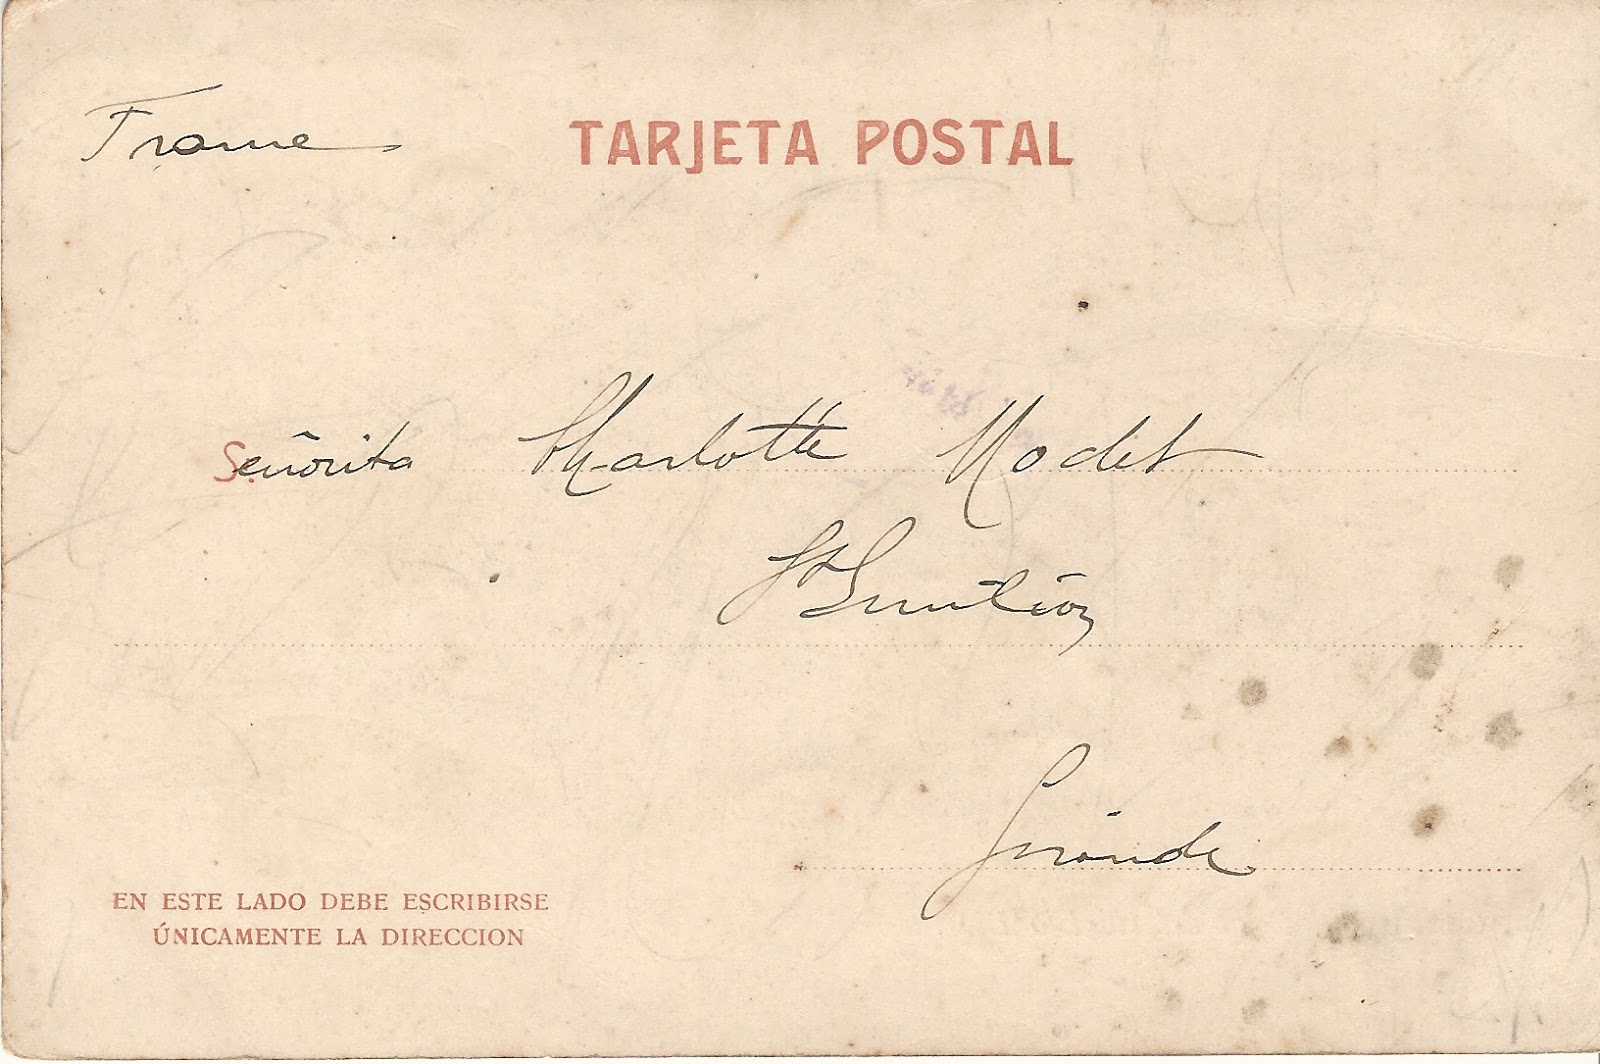 France
TARJETA POSTAL
Señorita Charlotte Modet
St Emilion
Gironde
EN ESTE LADO DEBE ESCRIBIRSE
ÚNICAMENTE LA DIRECCION